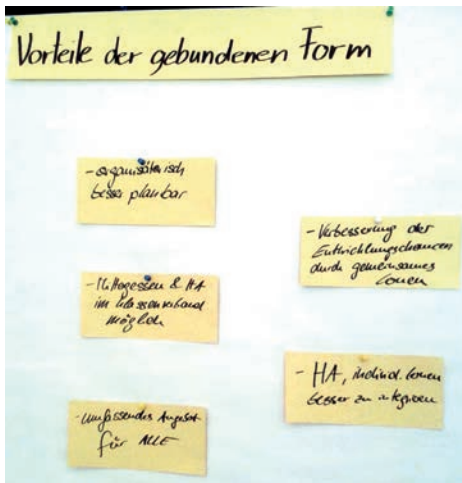 Vorteile der gebundenen Form
- organisatorisch
besser planbar
- Mittagessen & HA
im Klassenverband
möglich
- Umfassendes Angebot
für ALLE
- Verbesserung der
Entwicklungschancen
durch gemeinsames
Lernen
- HA, individ. Lernen
besser zu integrieren